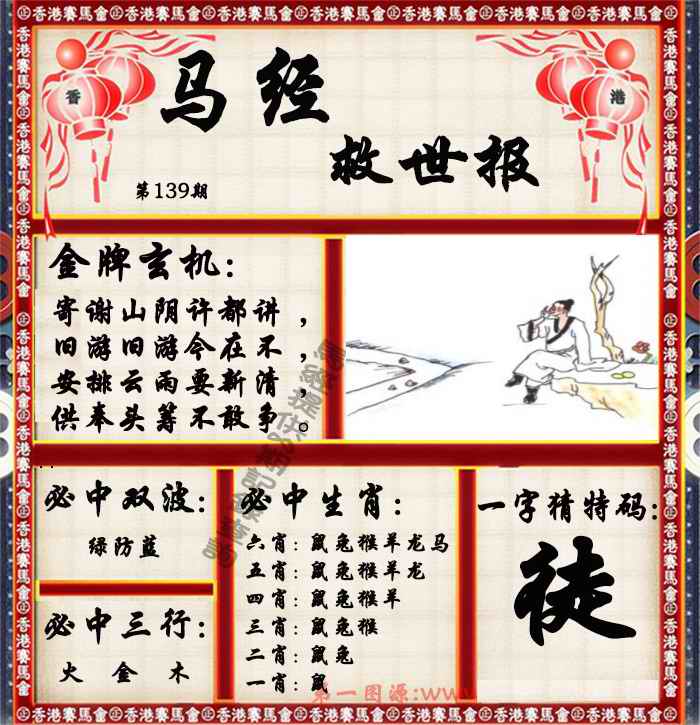 香港賽馬會
香
港
马经
救世报
第139期
金牌玄机：
寄谢山阴许都讲，
旧游旧游今在不，
安排云雨要新清，
供奉头筹不敢争。
必中双波：
绿防蓝
必中三行：
火 金 木
必中生肖：
六肖：鼠兔猴羊龙马
五肖：鼠兔猴羊龙
四肖：鼠兔猴羊
三肖：鼠兔猴
二肖：鼠兔
一肖：鼠
一字猜特码：
徒
第一图源:www